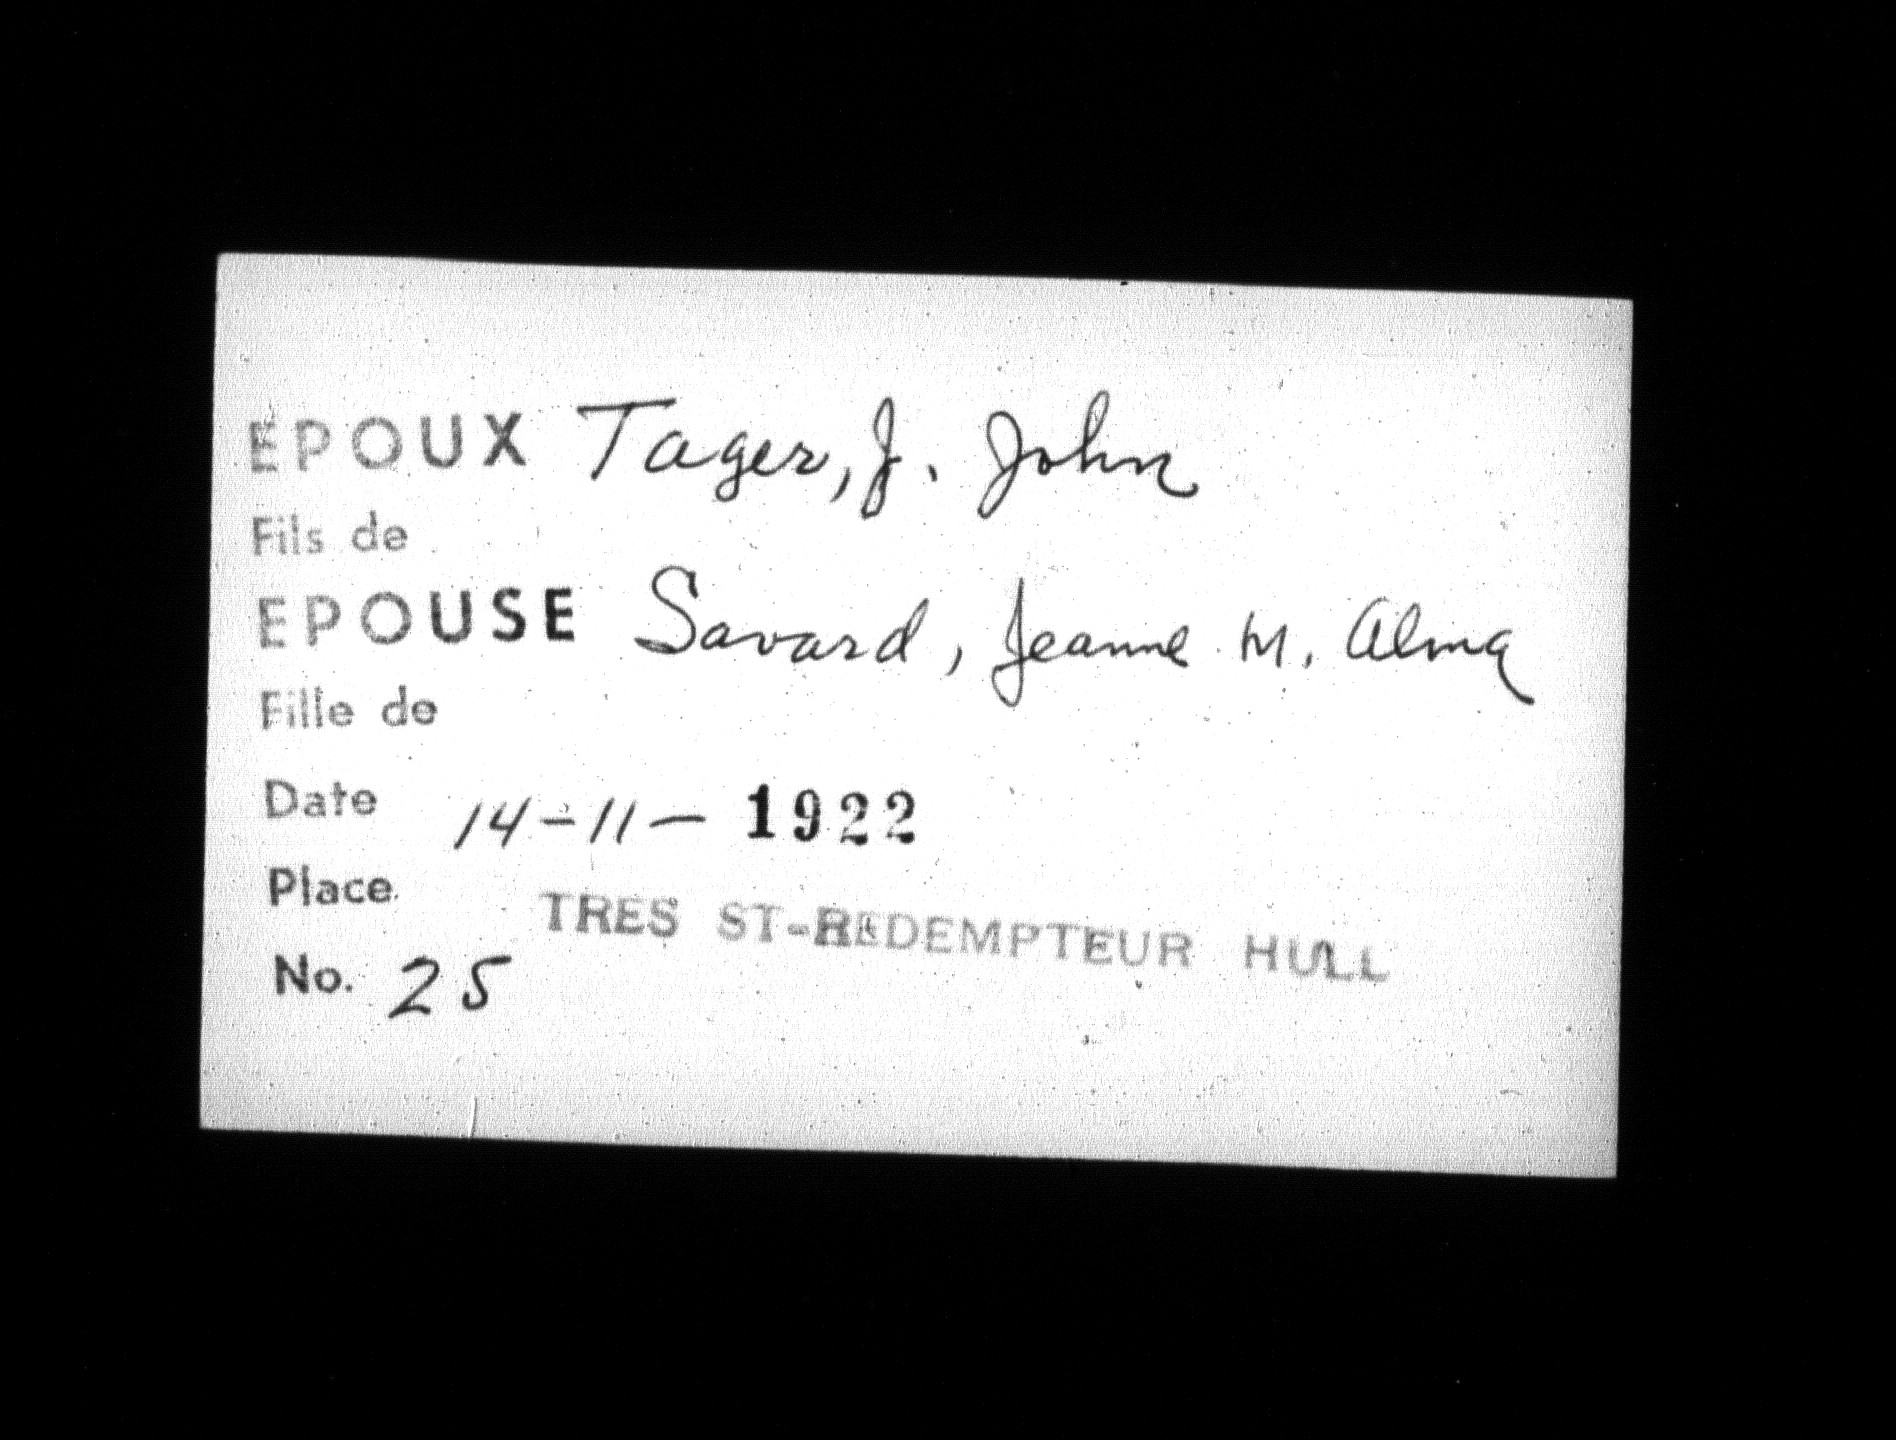 EPOUX Tager, J. John
Fils de
EPOUSE Savard, Jeanne M. Alma
Fille de
Date 14-11- 1922
Place TRES ST-REDEMPTEUR HULL
No. 25